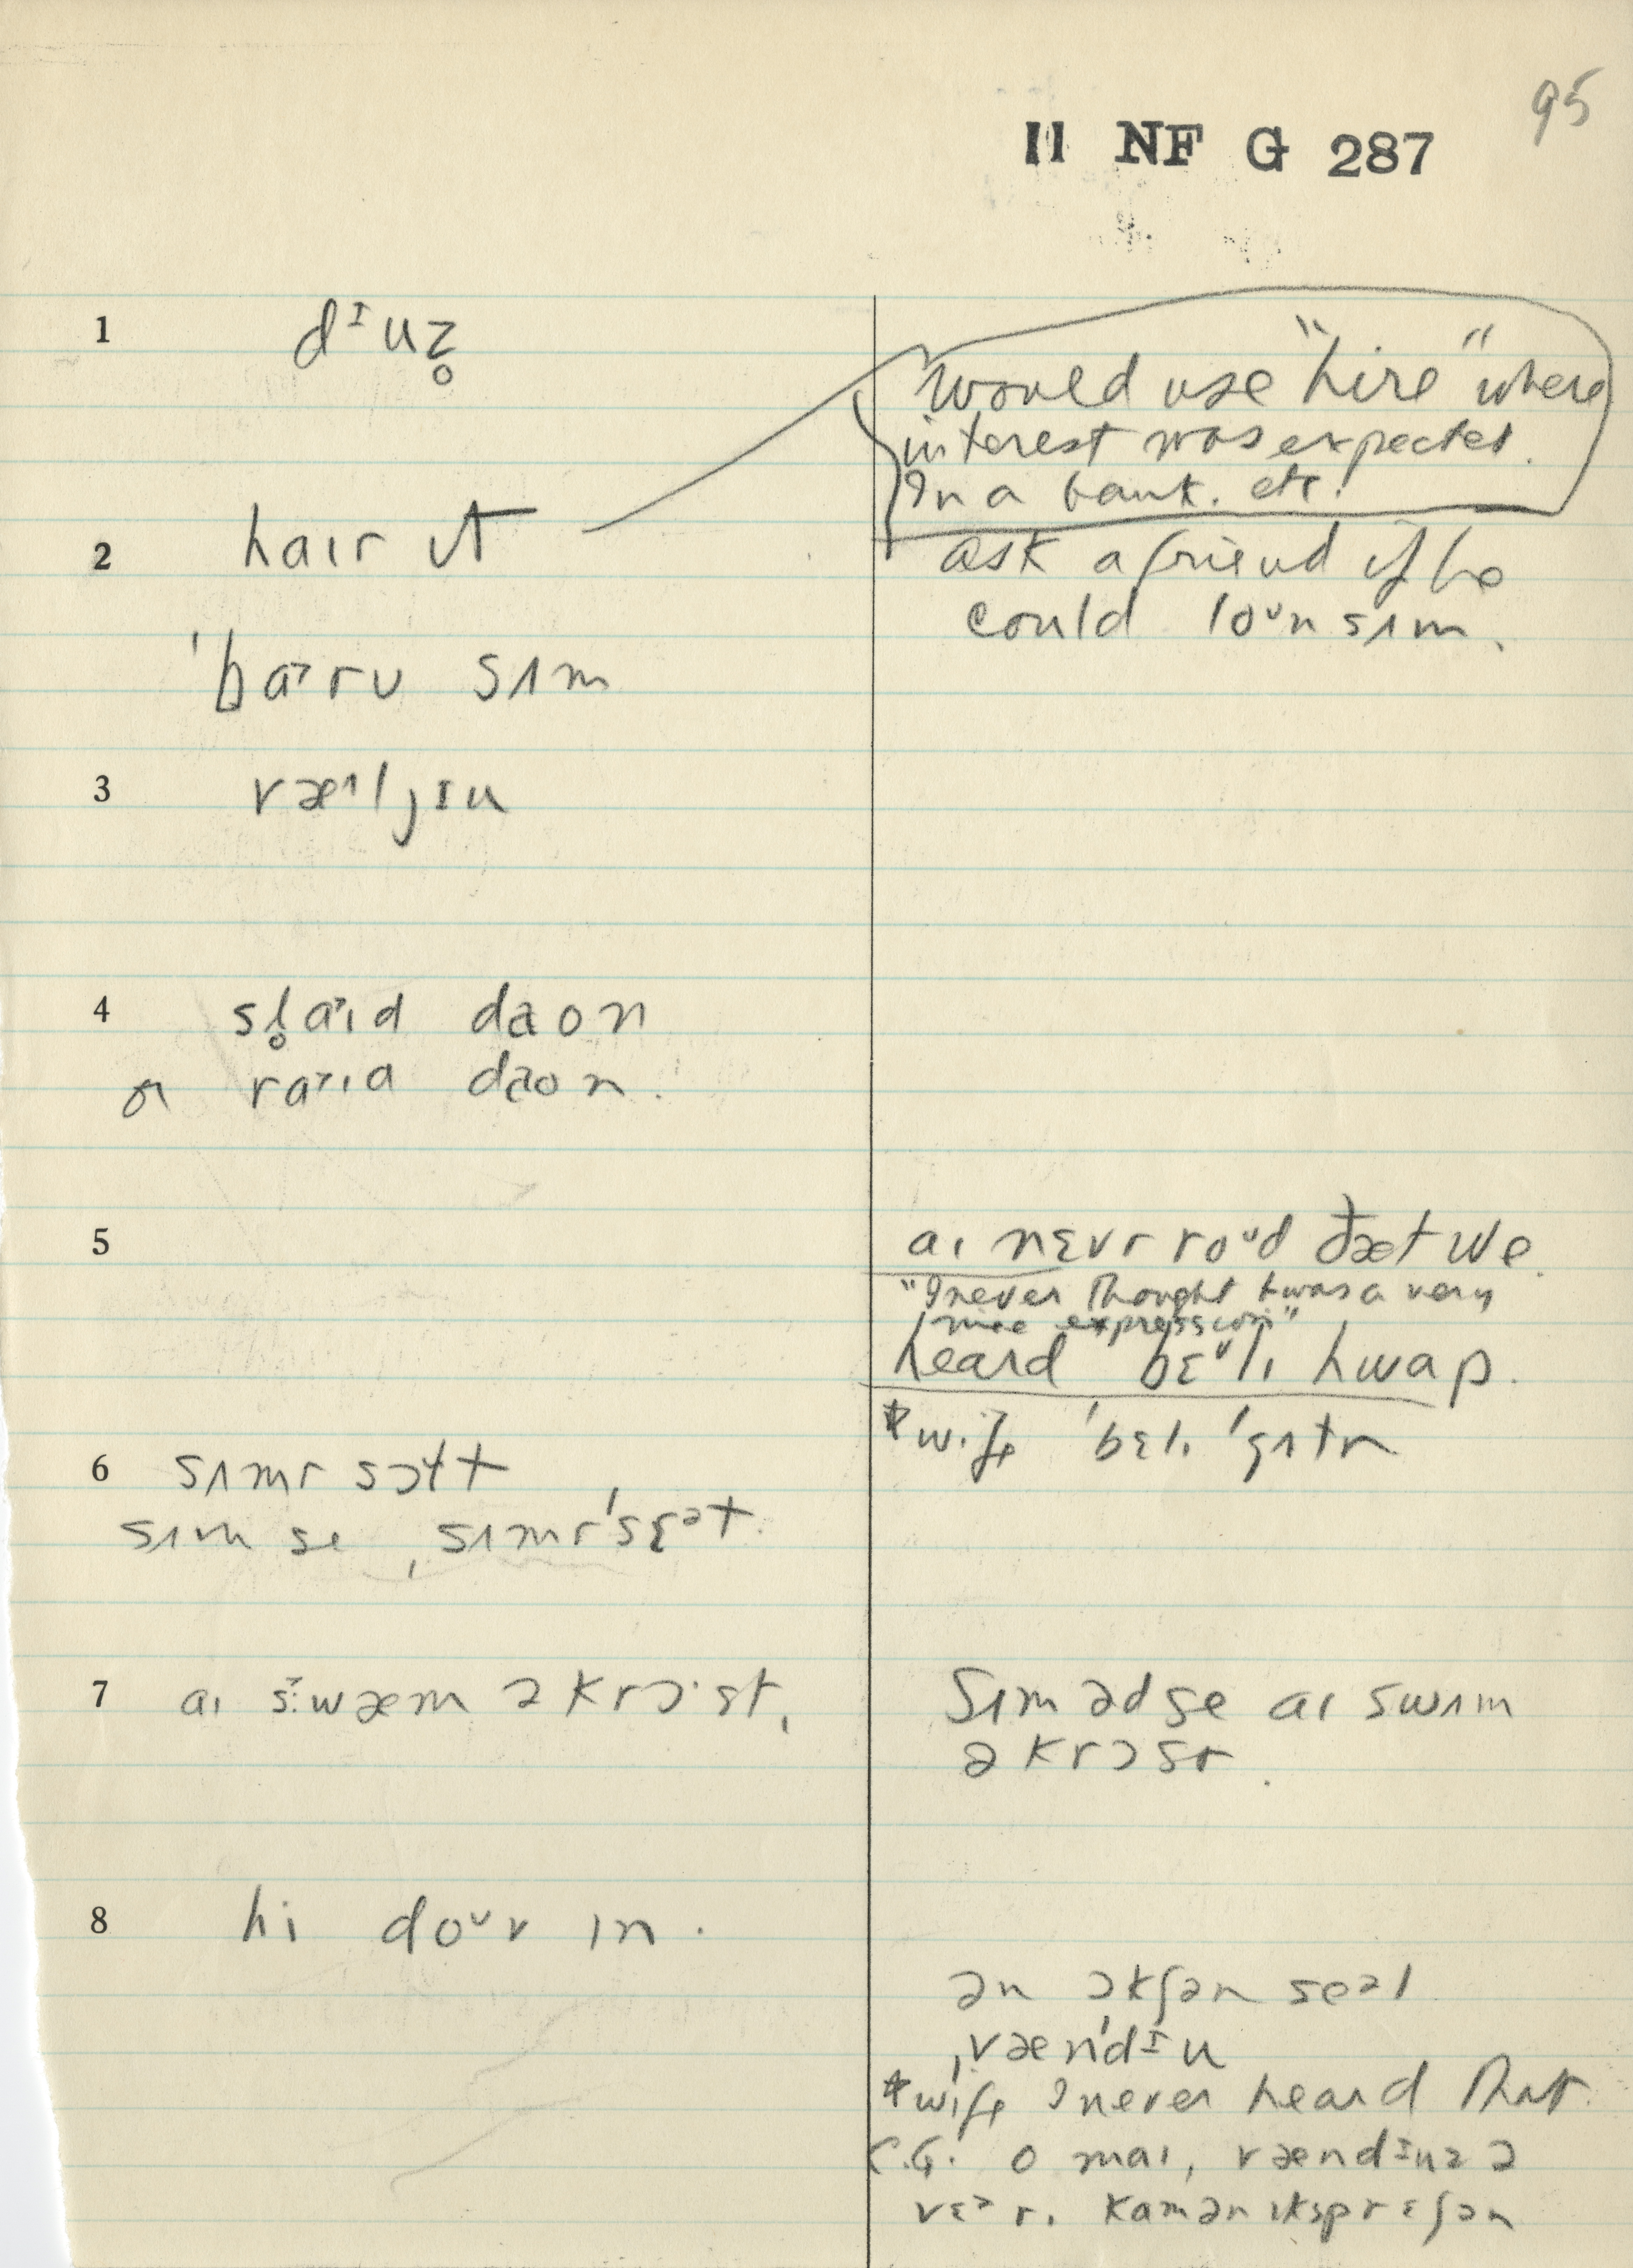 95
II NF G 287
1 dɪuz̥
would use "hire" where
interest was expected.
In a bank. etc.
2 haɪr ɪt
ask a friend if he
could loʊn sʌm.
ˈbarʊ sʌm
3 væˑljɪu
4 sl̥aɪd daon
or raɪd daon.
5 aɪ nɛvr roʊd ðæt we.
"I never thought twas a very
nice expression"
heard bɛlɪ hwap.
*wife ˈbɛlɪ ˈgʌtr
6 sʌmr sɔlt
sʌm se ˌsʌmrˈsɛət.
7 aɪ swæm əkrɔˑst.
sʌm əd se aɪ swʌm
əkrɔst.
8 hi doʊv ɪn.
ən ɔkʃən seəl
ˌvænˈdɪu
*wife I never heard that.
C.G. o maɪ, vændɪuz ə
vɛərɪ kamən ɪksprɛʃən